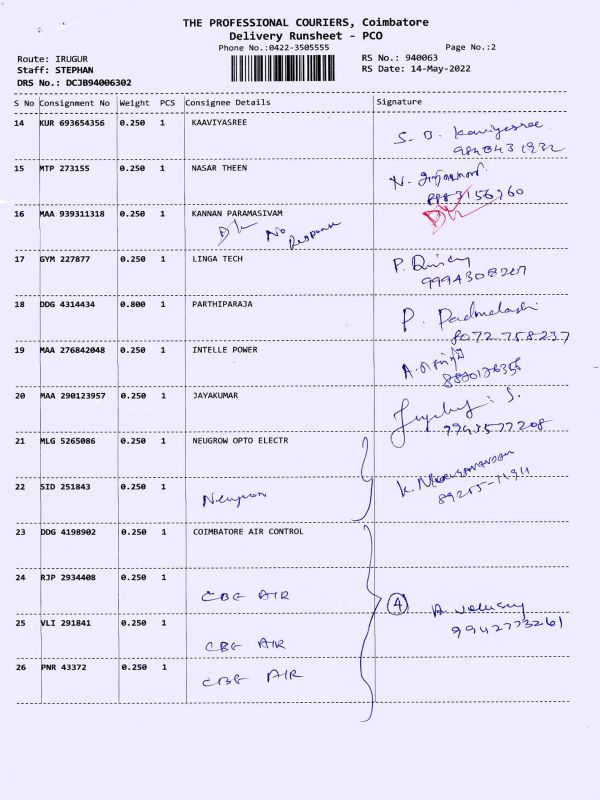 THE PROFESSIONAL COURIERS, Coimbatore
Delivery Runsheet - PCO
Phone No.:0422-3505555
Page No.:2
Route: IRUGUR
RS No.: 940063
Staff: STEPHAN
RS Date: 14-May-2022
DRS No.: DCJB94006302
S No Consignment No Weight PCS Consignee Details Signature
14 KUR 693654356 0.250 1 KAAVIYASREE
S. B. Kaviyasree
15 MTP 273155 0.250 1 NASAR THEEN
N.
16 MAA 939311318 0.250 1 KANNAN PARAMASIVAM
D/L No Response
D/L
17 GYM 227877 0.250 1 LINGA TECH
P.
18 DDG 4314434 0.800 1 PARTHIPARAJA
P.
8072 758237
19 MAA 276842048 0.250 1 INTELLE POWER
20 MAA 290123957 0.250 1 JAYAKUMAR
21 MLG 5265086 0.250 1 NEUGROW OPTO ELECTR
K.
22 SID 251843 0.250 1
23 DDG 4198902 0.250 1 COIMBATORE AIR CONTROL
24 RJP 2934408 0.250 1
CBE AIR
4
25 VLI 291841 0.250 1
9942773261
CBE AIR
26 PNR 43372 0.250 1
CBE AIR